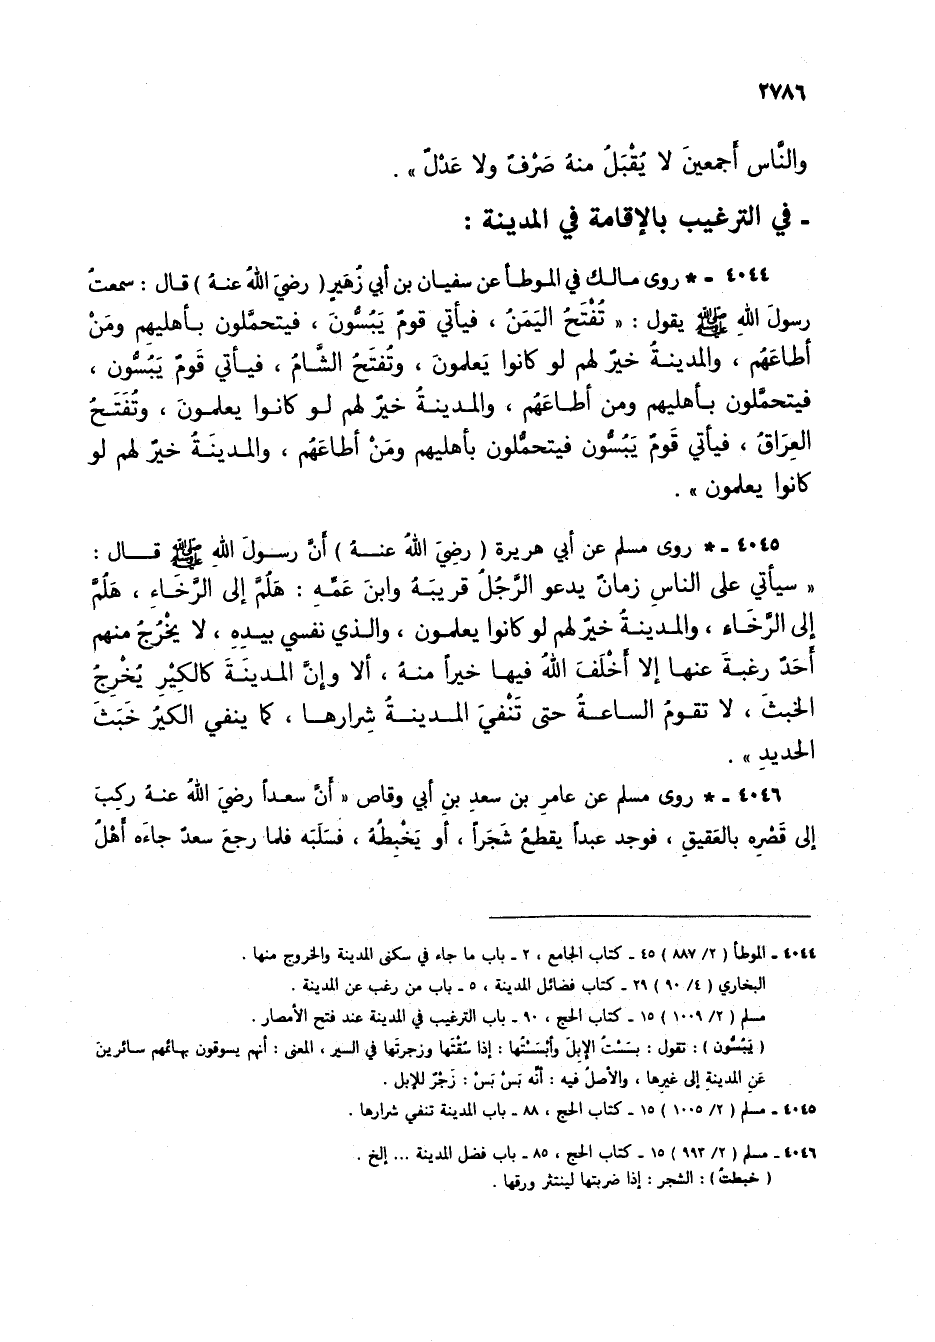 ٢٧٨٦
والنَّاس أجمعينَ لا يُقْبَلُ منهُ صَرْفٌ ولا عَدْلٌ » .
ـ في الترغيب بالإقامة في المدينة :
٤٠٤٤ ـ * روى مالك في الموطأ عن سفيان بن أبي زُهَيرٍ ( رضيَ اللهُ عنهُ ) قال : سمعتُ
رسولَ اللهِ ﷺ يقول : « تُفْتَحُ اليَمَنُ ، فيأتي قومٌ يَبُسُّونَ ، فيتحمَّلون بأهليهم ومَنْ
أطاعَهُم ، والمدينةُ خيرٌ لهم لو كانوا يَعلمونَ ، وتُفتَحُ الشَّامُ ، فيأتي قَومٌ يَبُسُّون ،
فيتحمَّلون بأهليهم ومن أطاعَهُم ، والمدينةُ خيرٌ لهم لو كانوا يعلمونَ ، وتُفتَحُ
العِراقُ ، فيأتي قَومٌ يَبُسُّون فيتحمَّلون بأهليهم ومَنْ أطاعَهُم ، والمدينَةُ خيرٌ لهم لو
كانوا يعلمون » .
٤٠٤٥ ـ * روى مسلم عن أبي هريرة ( رضيَ اللهُ عنهُ ) أنَّ رسولَ اللهِ ﷺ قال :
« سيأتي على الناسِ زمانٌ يدعو الرَّجُلُ قريبَهُ وابنَ عَمِّهِ : هَلُمَّ إلى الرَّخَاءِ ، هَلُمَّ
إلى الرَّخَاء ، والمدينةُ خيرٌ لهم لو كانوا يعلمون ، والذي نفسي بيدِهِ ، لا يخْرُجُ منهم
أَحَدٌ رغبةً عنها إلا أَخْلَفَ اللهُ فيها خيراً منهُ ، ألا وإنَّ المدينَةَ كالكيْرِ يُخْرِجُ
الخبثَ ، لا تقومُ الساعةُ حتى تَنْفيَ المدينةُ شِرارها ، كما ينفي الكيرُ خَبَثَ
الحديدِ » .
٤٠٤٦ ـ * روى مسلم عن عامرِ بن سعدِ بنِ أبي وقاص « أنَّ سعداً رضيَ اللهُ عنهُ ركبَ
إلى قَصْرِه بالعَقيقِ ، فوجد عبداً يقطعُ شَجَراً ، أو يَخْبِطُهُ ، فسَلَبَه فلما رجعَ سعدٌ جاءَه أهْلُ
٤٠٤٤ ـ الموطأ ( ٢/ ٨٨٧ ) ٤٥ ـ كتاب الجامع ، ٢ ـ باب ما جاء في سكنى المدينة والخروج منها .
البخاري ( ٤/ ٩٠ ) ٢٩ ـ كتاب فضائل المدينة ، ٥ ـ باب من رغب عن المدينة .
مسلم ( ٢/ ١٠٠٩ ) ١٥ ـ كتاب الحج ، ٩٠ ـ باب الترغيب في المدينة عند فتح الأمصار .
( يَبُسُّون ) : تقول : بسَسْتُ الإبلَ وأبْسَسْتُها : إذا سُقْتَها وزجرتَها في السير ، المعنى : أنهم يسوقون بهائمهم سائرينَ
عَنِ المدينةِ إلى غيرها ، والأصلُ فيه : أنَّه بَسْ بَسْ : زَجْرٌ للإبل .
٤٠٤٥ ـ مسلم ( ٢/ ١٠٠٥ ) ١٥ ـ كتاب الحج ، ٨٨ ـ باب المدينة تنفي شرارها .
٤٠٤٦ ـ مسلم ( ٢/ ٩٩٣ ) ١٥ ـ كتاب الحج ، ٨٥ ـ باب فضل المدينة ... إلخ .
( خبطتُ ) : الشجر : إذا ضربتها لينتثر ورقها .